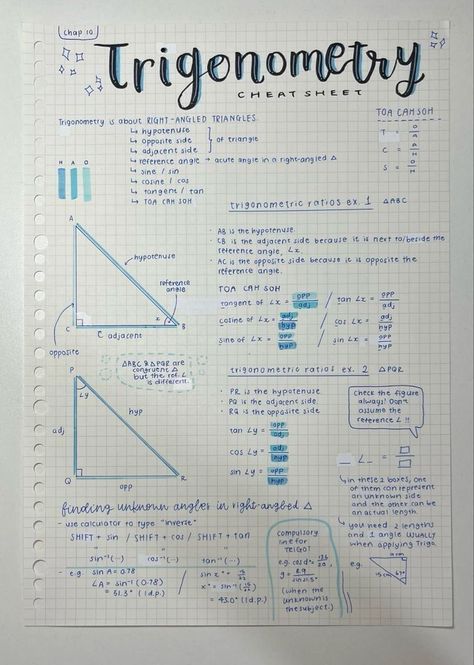 Chap 10
Trigonometry
CHEAT SHEET
Trigonometry is about RIGHT-ANGLED TRIANGLES
↳ hypotenuse
↳ opposite side
↳ adjacent side
} of triangle
↳ reference angle → acute angle in a right-angled △
↳ sine / sin
↳ cosine / cos
↳ tangent / tan
↳ TOA CAH SOH
H A O
TOA CAH SOH
T = O/A
C = A/H
S = O/H
trigonometric ratios ex. 1 △ABC
A
hypotenuse
reference angle
x
B
C
C adjacent
opposite
· AB is the hypotenuse.
· CB is the adjacent side because it is next to/beside the
reference angle, ∠x.
· AC is the opposite side because it is opposite the
reference angle.
TOA CAH SOH
tangent of ∠x = opp/adj / tan ∠x = opp/adj
cosine of ∠x = adj/hyp / cos ∠x = adj/hyp
sine of ∠x = opp/hyp / sin ∠x = opp/hyp
△ABC & △PQR are
congruent △
but the ref. ∠
is different.
trigonometric ratios ex. 2 △PQR
P
∠y
hyp
adj
Q
opp
R
· PR is the hypotenuse
· PQ is the adjacent side.
· RQ is the opposite side
tan ∠y = opp/adj
cos ∠y = adj/hyp
sin ∠y = opp/hyp
Check the figure
always! Don't
assume the
reference ∠ !!
_ ∠_ = □/□
↳ in these 2 boxes, one
of them can represent
an unknown side
and the other can be
an actual length.
↳ you need 2 lengths
and 1 angle USUALLY
when applying Trigo.
e.g.
finding unknown angles in right-angled △
- use calculator to type "inverse"
SHIFT + sin / SHIFT + cos / SHIFT + tan
" " "
sin⁻¹(...) cos⁻¹(...) tan⁻¹(...)
- e.g. sin A = 0.78
∠A = sin⁻¹(0.78)
= 51.3° (1d.p.)
= 43.0° (1d.p.)
compulsory
line for
TRIGO!
(when the
unknown is
the subject.)